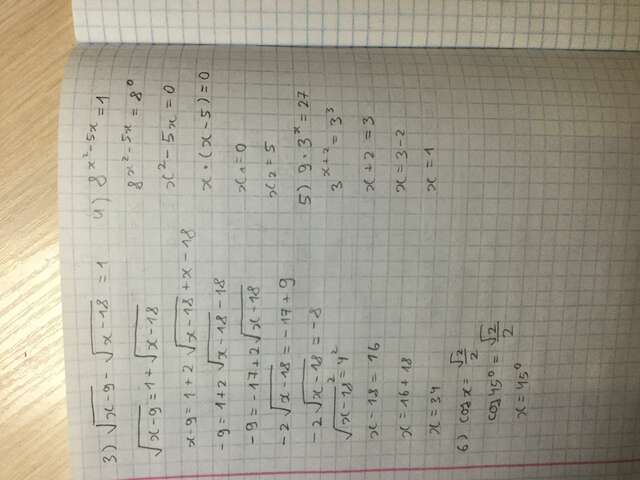 3) √x-9 - √x-18 = 1
√x-9 = 1+√x-18
x-9 = 1+2√x-18 + x-18
-9 = 1+2√x-18 - 18
-9 = -17+2√x-18
-2√x-18 = -17+9
-2√x-18 = -8
√x-18² = 4²
x-18 = 16
x = 16+18
x = 34
6) cos x = √2/2
cos45° = √2/2
x = 45°
4) 8^(x²-5x) = 1
8^(x²-5x) = 8⁰
x²-5x = 0
x·(x-5) = 0
x₁ = 0
x₂ = 5
5) 9·3ˣ = 27
3^(x+2) = 3³
x+2 = 3
x = 3-2
x = 1